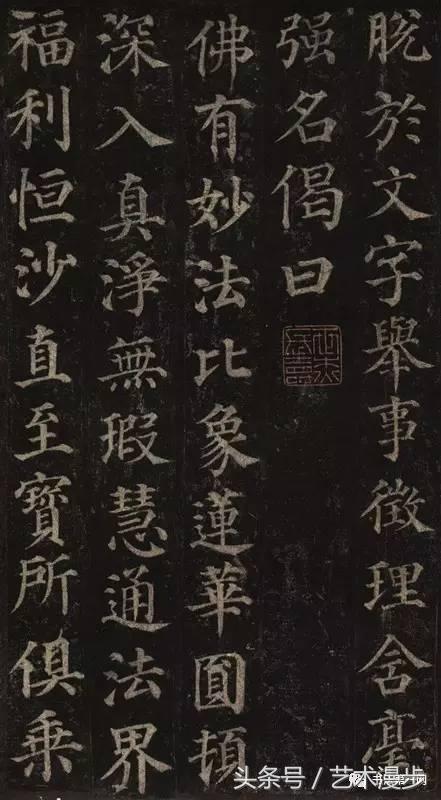 脱於文字舉事徵理含毫
强名偈曰
佛有妙法比象蓮華圓頓
深入真淨無瑕慧通法界
福利恒沙直至寶所俱乘
头条号 / 艺术漫步